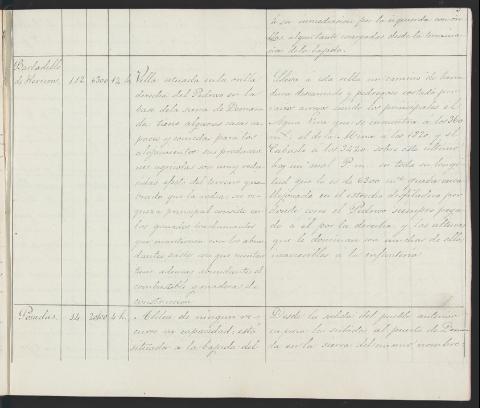 á su inmediacion por la izquierda con
alquitante cargados desde la termina
cion de la bajada.
Barbadillo
de Herreros
112
6300
1½ h.
Villa situada en la orilla
derecha del Pedroso en la
base de la sierra de Demanda
da tiene algunas casas ca
paces y comoda para los
alojamientos sus produccio
nes agricolas son muy redu
cidas efecto del terreno que
brado que la rodea, su ri
queza principal consiste en
los ganados trashumantes
que mantienen con los abun
dantes pastos con que cuentan
tiene ademas abundante el
combustible y maderas de
construccion
Lleva á esta villa un camino de herra
dura desarmado y pedregoso cortado por
varios arroyos siendo los principales el
Agua Fria que se encuentra á los 360
m.s el de la Mina á los 1320 y el
Cabrado á los 3420 sobre este ultimo
hay un mal P.m en toda su longi
tud que lo es de 6300 m.s queda enca
jonado en el estrecho desfiladero por
donde corre el Pedroso siempre pega
do á él por la derecha y las alturas
que le dominan son muchas de ellas
inaccesibles á la infanteria
Posadas
24
20400
4 h.
Aldea de ningun re
curso ni capacidad, está
situada á la bajada del
Desde la salida del pueblo anterior
se la subida al puerto de Deman
da en la sierra del mismo nombre